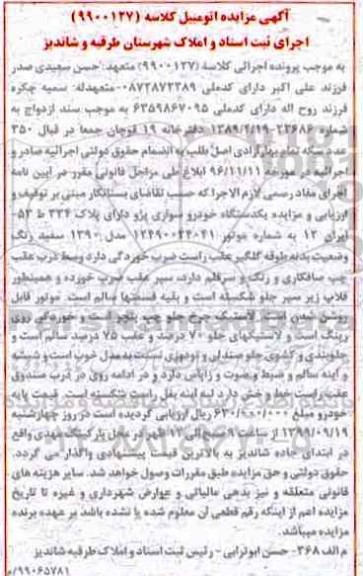 آگهی مزایده اتومبیل کلاسه (۹۹۰۰۱۲۷)
اجرای ثبت اسناد و املاک شهرستان طرقبه و شاندیز
به موجب پرونده اجرائی کلاسه (۹۹۰۰۱۲۷) متعهد: حسن سعیدی صدر
فرزند علی اکبر دارای کدملی ۰۸۷۲۸۷۲۳۸۹-متعهدله: سمیه چکره
فرزند روح اله دارای کدملی ۶۳۵۹۸۶۷۰۹۵ به موجب سند ازدواج به
شماره ۲۳۶۸۶-۱۳۸۹/۹/۱۹ دفترخانه ۱۹ قوچان جمعا در قبال ۳۵۰
عدد سکه تمام بهار آزادی اصل طلب به انضمام حقوق دولتی اجرائیه صادر و
اجرائیه در مورخه ۹۶/۱۱/۱۱ ابلاغ طی مراحل قانونی مقرر در آیین نامه
اجرای مفاد رسمی لازم الاجرا که حسب تقاضای بستانکار مبنی بر توقیف و
ارزیابی و مزایده یکدستگاه خودرو سواری پژو دارای پلاک ۳۳۴ ط ۵۳-
ایران ۱۲ به شماره موتور ۱۲۴۹۰۰۳۴۰۴۱ مدل ۱۳۹۰ سفید رنگ
وضعیت بدنه طوقه گلگیر عقب راست ضرب خوردگی دارد وسط درب عقب
چپ صافکاری و رنگ و سرقلم دارد، سپر عقب ضرب خورده و همینطور
قلاب زیر سپر جلو شکسته است و بقیه قسمتها سالم است. موتور قابل
روشن شدن است. لاستیک چرخ جلو چپ پنچر است و خوردگی روی
رینگ است و لاستیکهای جلو ۷۰ درصد و عقب ۷۵ درصد سالم است و
جلوبندی و کشوی جلو صندلی و تودوزی نسبت به مدل خوب است و شیشه
و آینه سالم و ضبط و صوت و زاپاس دارد و در ادامه روی در درب صندوق
عقب راست خط و خش دارد لبه آینه بغل راست شکسته است. قیمت پایه
خودرو مبلغ ۶۳۰/۹۰۰/۰۰۰ ریال ارزیابی گردیده است در روز چهارشنبه
۱۳۹۹/۰۹/۱۹ از ساعت ۹ صبح الی ۱۲ ظهر در محل پارکینگ مهدی واقع
در ابتدای جاده شاندیز به بالاترین قیمت پیشنهادی واگذار می گردد.
حقوق دولتی و حق مزایده طبق مقررات وصول خواهد شد. سایر هزینه های
قانونی متعلقه و نیز بدهی مالیاتی و عوارض شهرداری و غیره تا تاریخ
مزایده اعم از اینکه رقم قطعی آن معلوم شده یا نشده باشد بر عهده برنده
مزایده میباشد.
م الف ۳۶۸- حسن ابوترابی - رئیس ثبت اسناد و املاک طرقبه شاندیز
۹۹۰۶۵۷۸۱/م